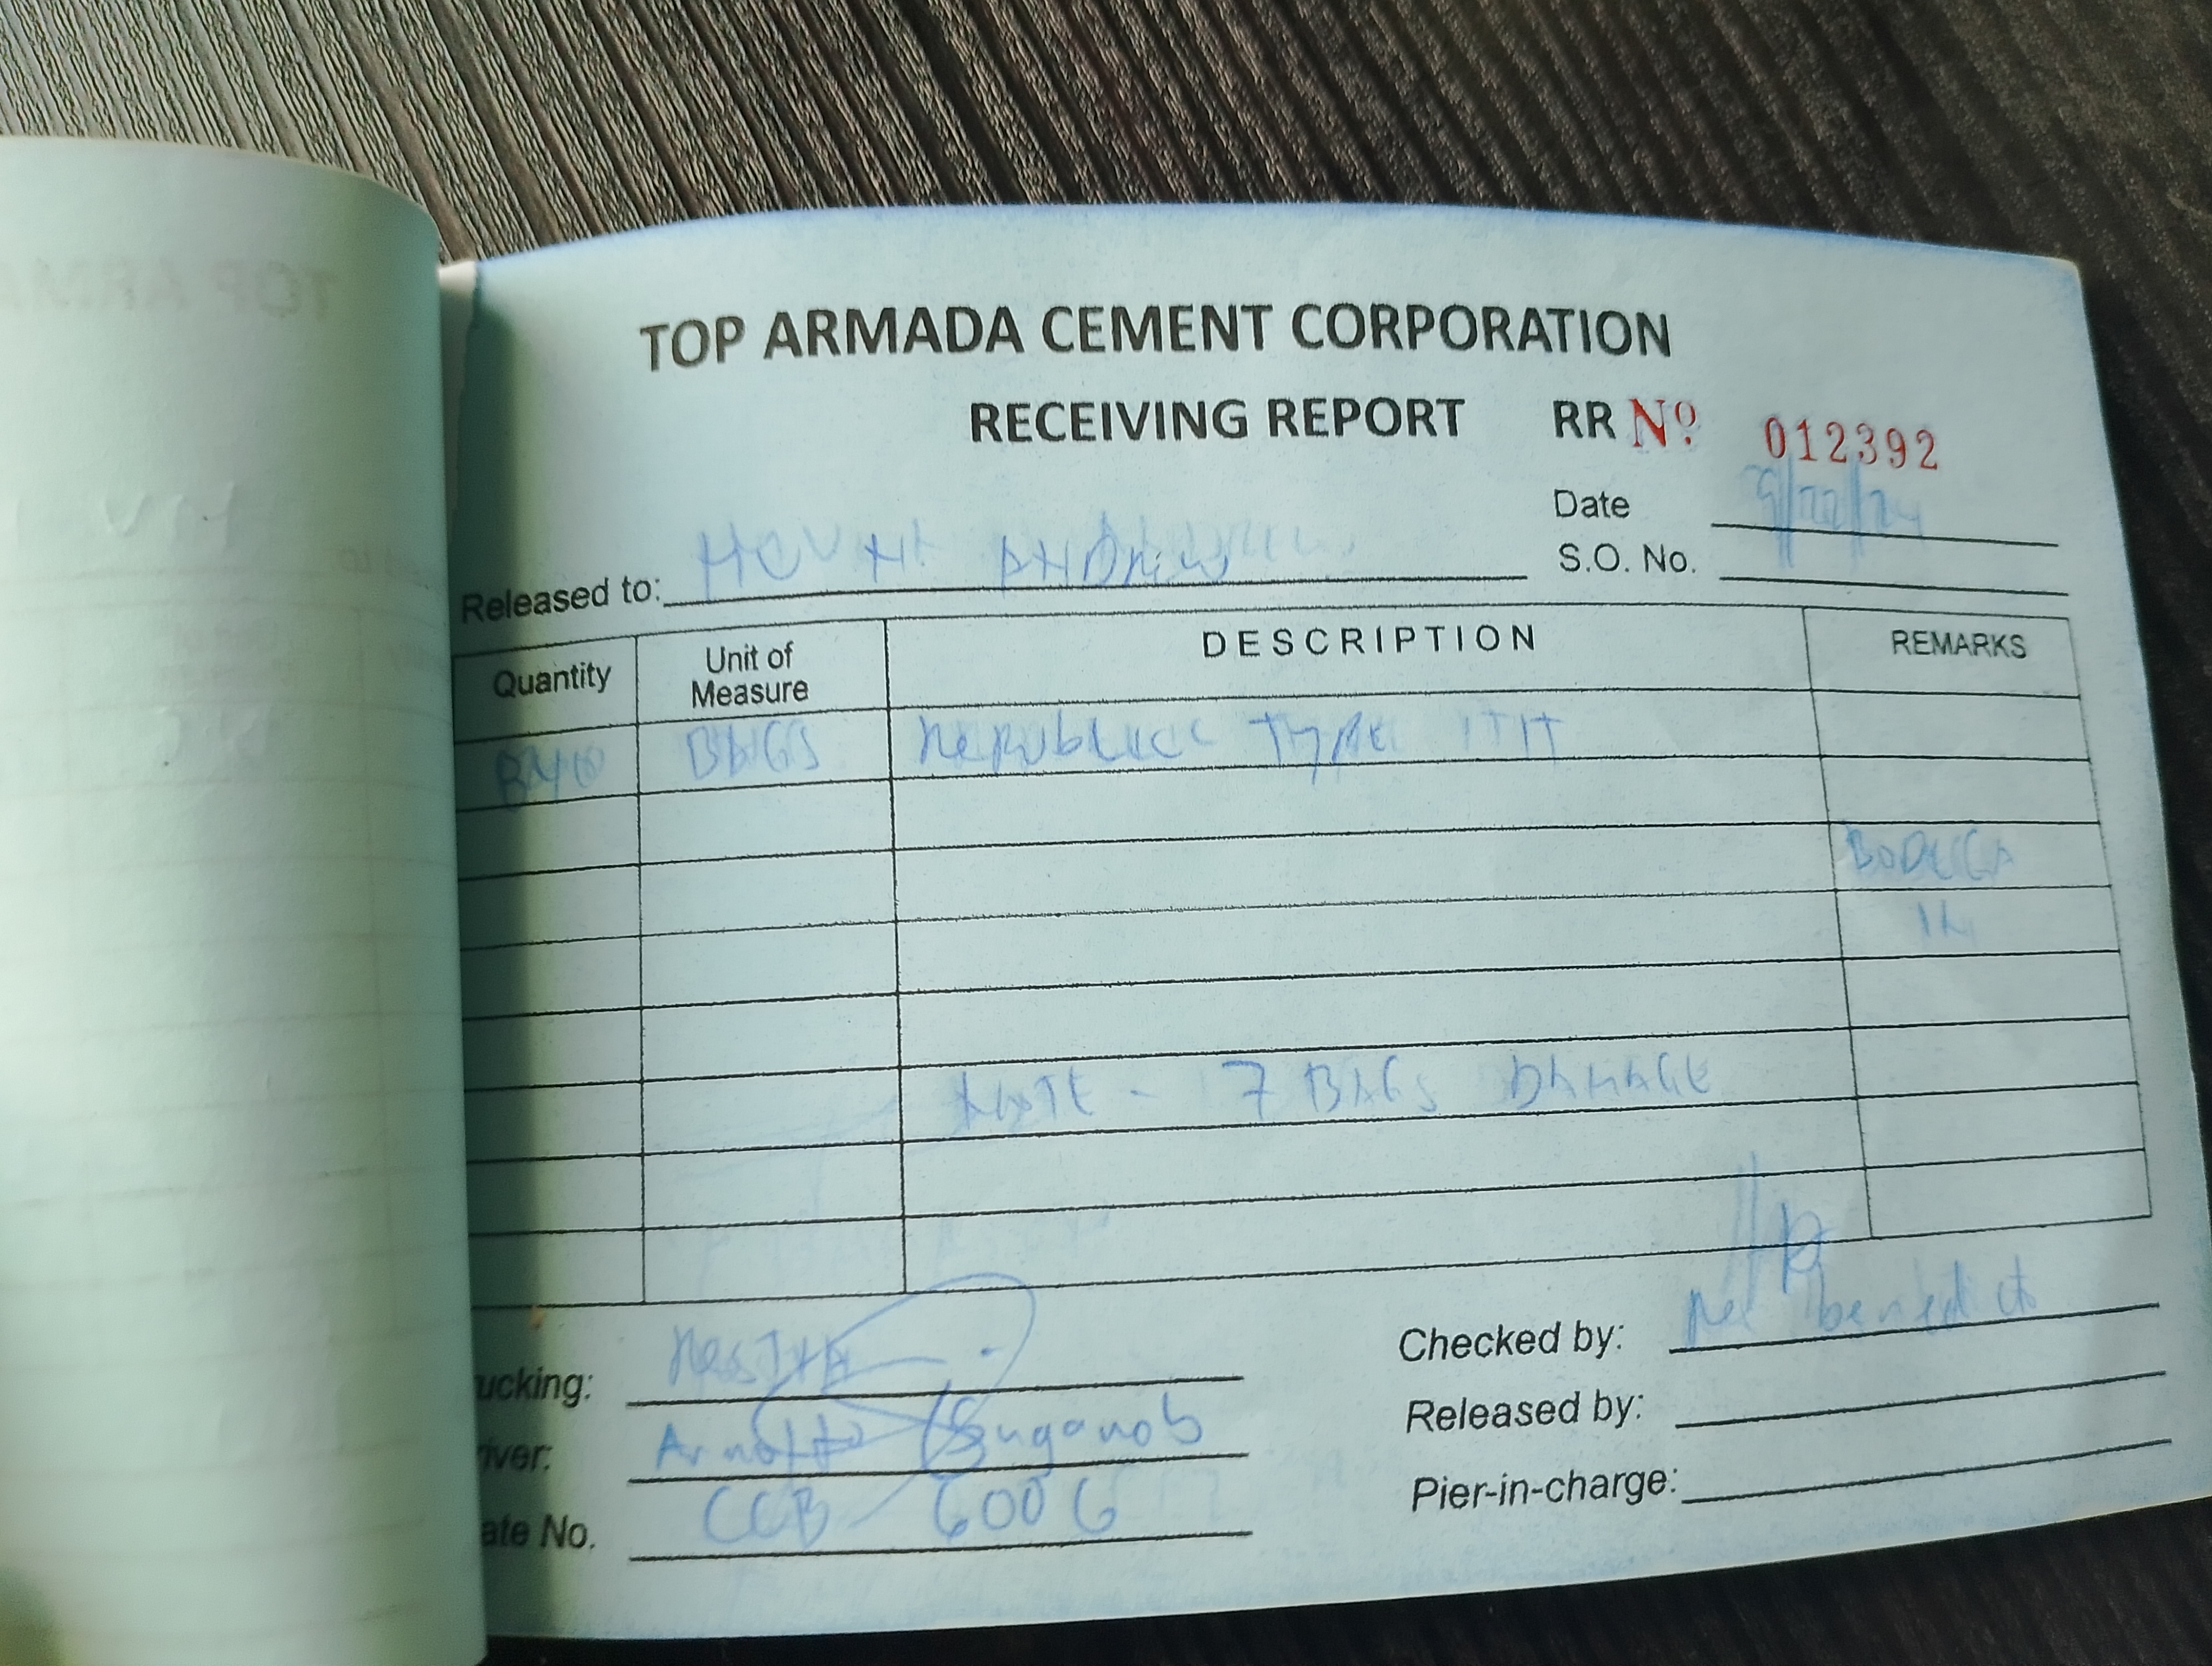 TOP ARMADA CEMENT CORPORATION
RECEIVING REPORT RR Nº 012392
Date 9/22/24
S.O. No.
Released to: MOUNT
Quantity Unit of Measure DESCRIPTION REMARKS
BAGS REPUBLIC TYPE
BODEGA
IN
NOTE - 7 BAGS DAMAGE
ucking:
iver: Suganob
ate No. CCB 6006
Checked by: benedicto
Released by:
Pier-in-charge: